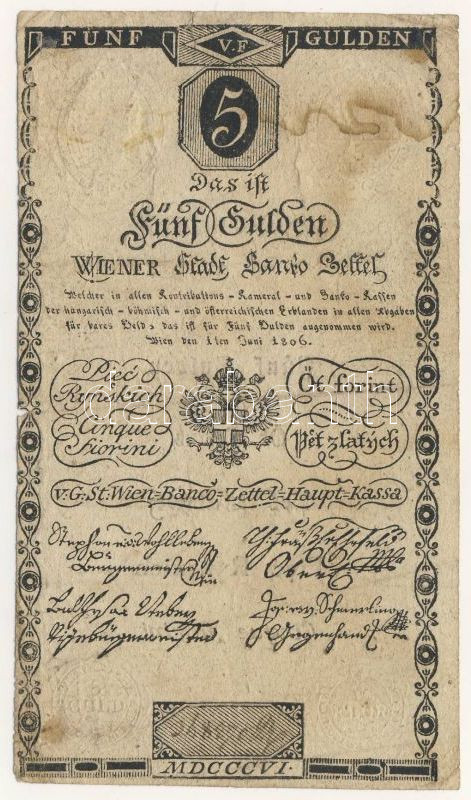 FÜNF V.F GULDEN
5
Das ist
Fünf Gulden
WIENER Stadt Banko Zettel
Welcher in allen Kontributions - Kameral - und Banko - Kassen
der hungarisch - böhmisch - und österreichischen Erblanden in allen Abgaben
für bares Geld, das ist für Fünf Gulden angenommen wird.
Wien den 1ten Juni 1806.
Pieć
Ryńskich
Cinque
Fiorini
Öt forint
Pět zlatých
darabanth
v. G. St. Wien=Banco=Zettel=Haupt=Kassa
Stephan Wohlleben
Bürgermeister
Oberst
Vizebürgermeister
Schmerling
Gegenhand
MDCCCVI.